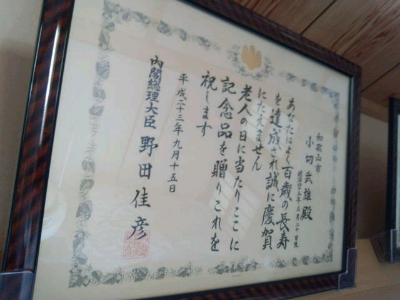 和歌山市
小切武雄殿
あなたはよく百歳の長寿
を達成され誠に慶賀
にたえません
老人の日に当たりここに
記念品を贈りこれを
祝します
平成二十三年九月十五日
内閣総理大臣 野田佳彦